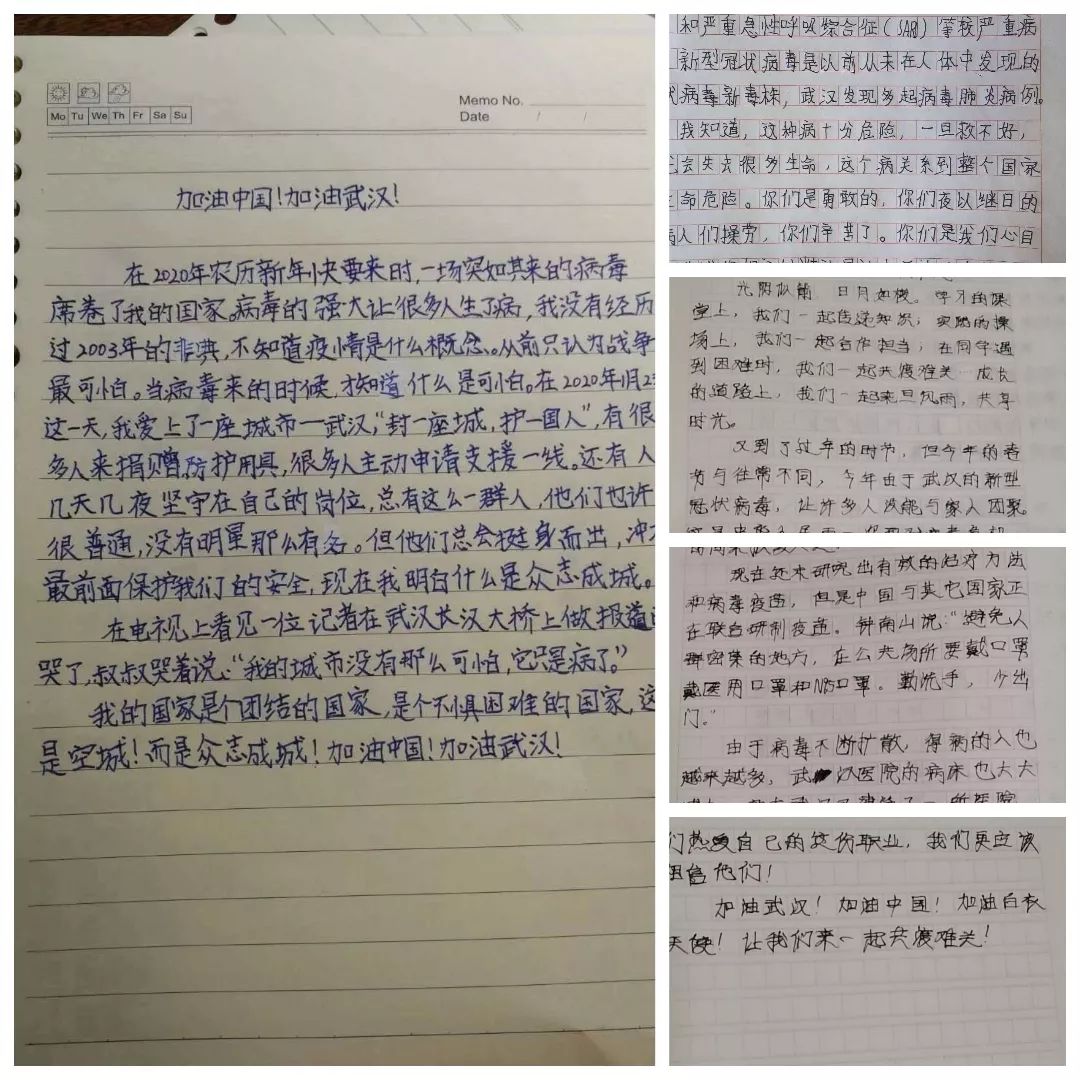 Mo Tu We Th Fr Sa Su
Memo No.
Date / /
加油中国!加油武汉!
在2020年农历新年快要来时,一场突如其来的病毒
席卷了我的国家。病毒的强大让很多人生了病,我没有经历
过2003年的非典,不知道疫情是什么概念。从前只认为战争
最可怕。当病毒来的时候,才知道什么是可怕。在2020年1月2
这一天,我爱上了一座城市—武汉,“封一座城,护一国人”,有很
多人来捐赠防护用具,很多人主动申请支援一线。还有人
几天几夜坚守在自己的岗位,总有这么一群人,他们也许
很普通,没有明星那么有名。但他们总会挺身而出,冲
最前面保护我们的安全,现在我明白什么是众志成城。
在电视上看见一位记者在武汉长汉大桥上做报道
哭了,叔叔哭着说:“我的城市没有那么可怕,它只是病了。”
我的国家是个团结的国家,是个不惧困难的国家,这
是空城!而是众志成城!加油中国!加油武汉!
和严重急性呼吸综合征(SAR)等较严重病
新型冠状病毒是以前从未在人体中发现的
状病毒新毒株,武汉发现多起病毒肺炎病例。
我知道,这种病十分危险,一旦救不好,
会失去很多生命,这个病关系到整个国家
命危险。你们是勇敢的,你们夜以继日的
病人们操劳,你们辛苦了。你们是我们心目
光阴似箭,日月如梭。学习的课
堂上,我们一起传递知识;实践的操
场上,我们一起合作担当;在同学遇
到困难时,我们一起共渡难关…成长
的道路上,我们一起来自风雨,共享
时光。
又到了过年的时节,但今年的春
节与往常不同,今年由于武汉的新型
冠状病毒,让许多人没能与家人团聚。
现在还未研究出有效的治疗方法
和病毒疫苗,但是中国与其它国家正
在联合研制疫苗。钟南山说:“避免人
群密集的地方,在公共场所要戴口罩
戴医用口罩和N95口罩。勤洗手,少出
门。”
由于病毒不断扩散,得病的人也
越来越多,武汉医院的病床也大大
们热爱自己的这份职业,我们更应该
相信他们!
加油武汉!加油中国!加油白衣
天使!让我们来一起共渡难关!